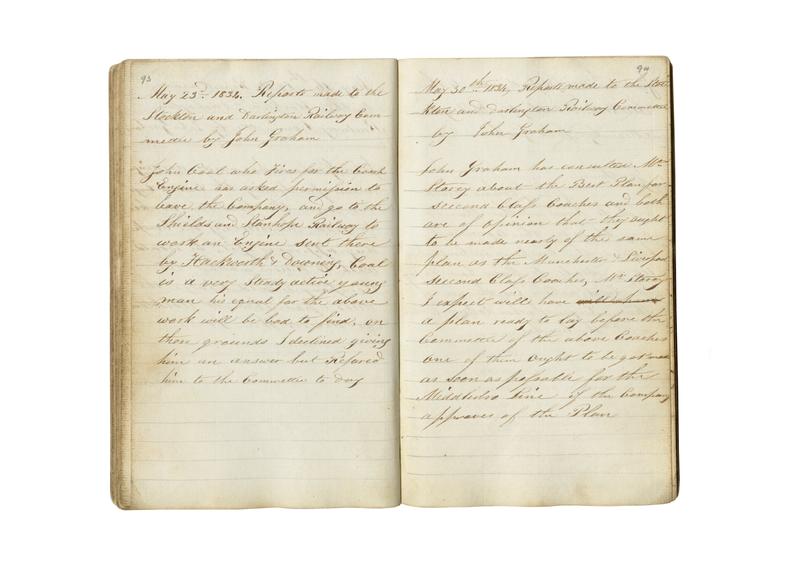 93
May 23rd 1834. Reports made to the
Stockton and Darlington Railway Com
mettee by John Graham
John Coat who Fires for the Coach
Engine has asked permission to
leave the Company, and go to the
Shields and Stanhope Railway to
work an Engine sent there
by Hackworth & Downing, Coal
is a very steady active young
man his equal for the above
work will be bad to find, on
those grounds I declined giving
him an answer but Refered
him to the Committee to day
94
May 30th 1834, Reports made to the Stoc
kton and Darlington Railway Committee
by John Graham
John Graham has consulted Mr
Storey about the Best Plan for
second Class Coaches and both
are of opinion that they ought
to be made nearly of the same
plan as the Manchester & Liverpool
second Class Coaches, Mr Storey
I expect will have
a plan ready to lay before the
Committee of the above Coaches
one of them ought to be got made
as soon as possable for the
Middlesbro Line if the Company
approves of the Plan